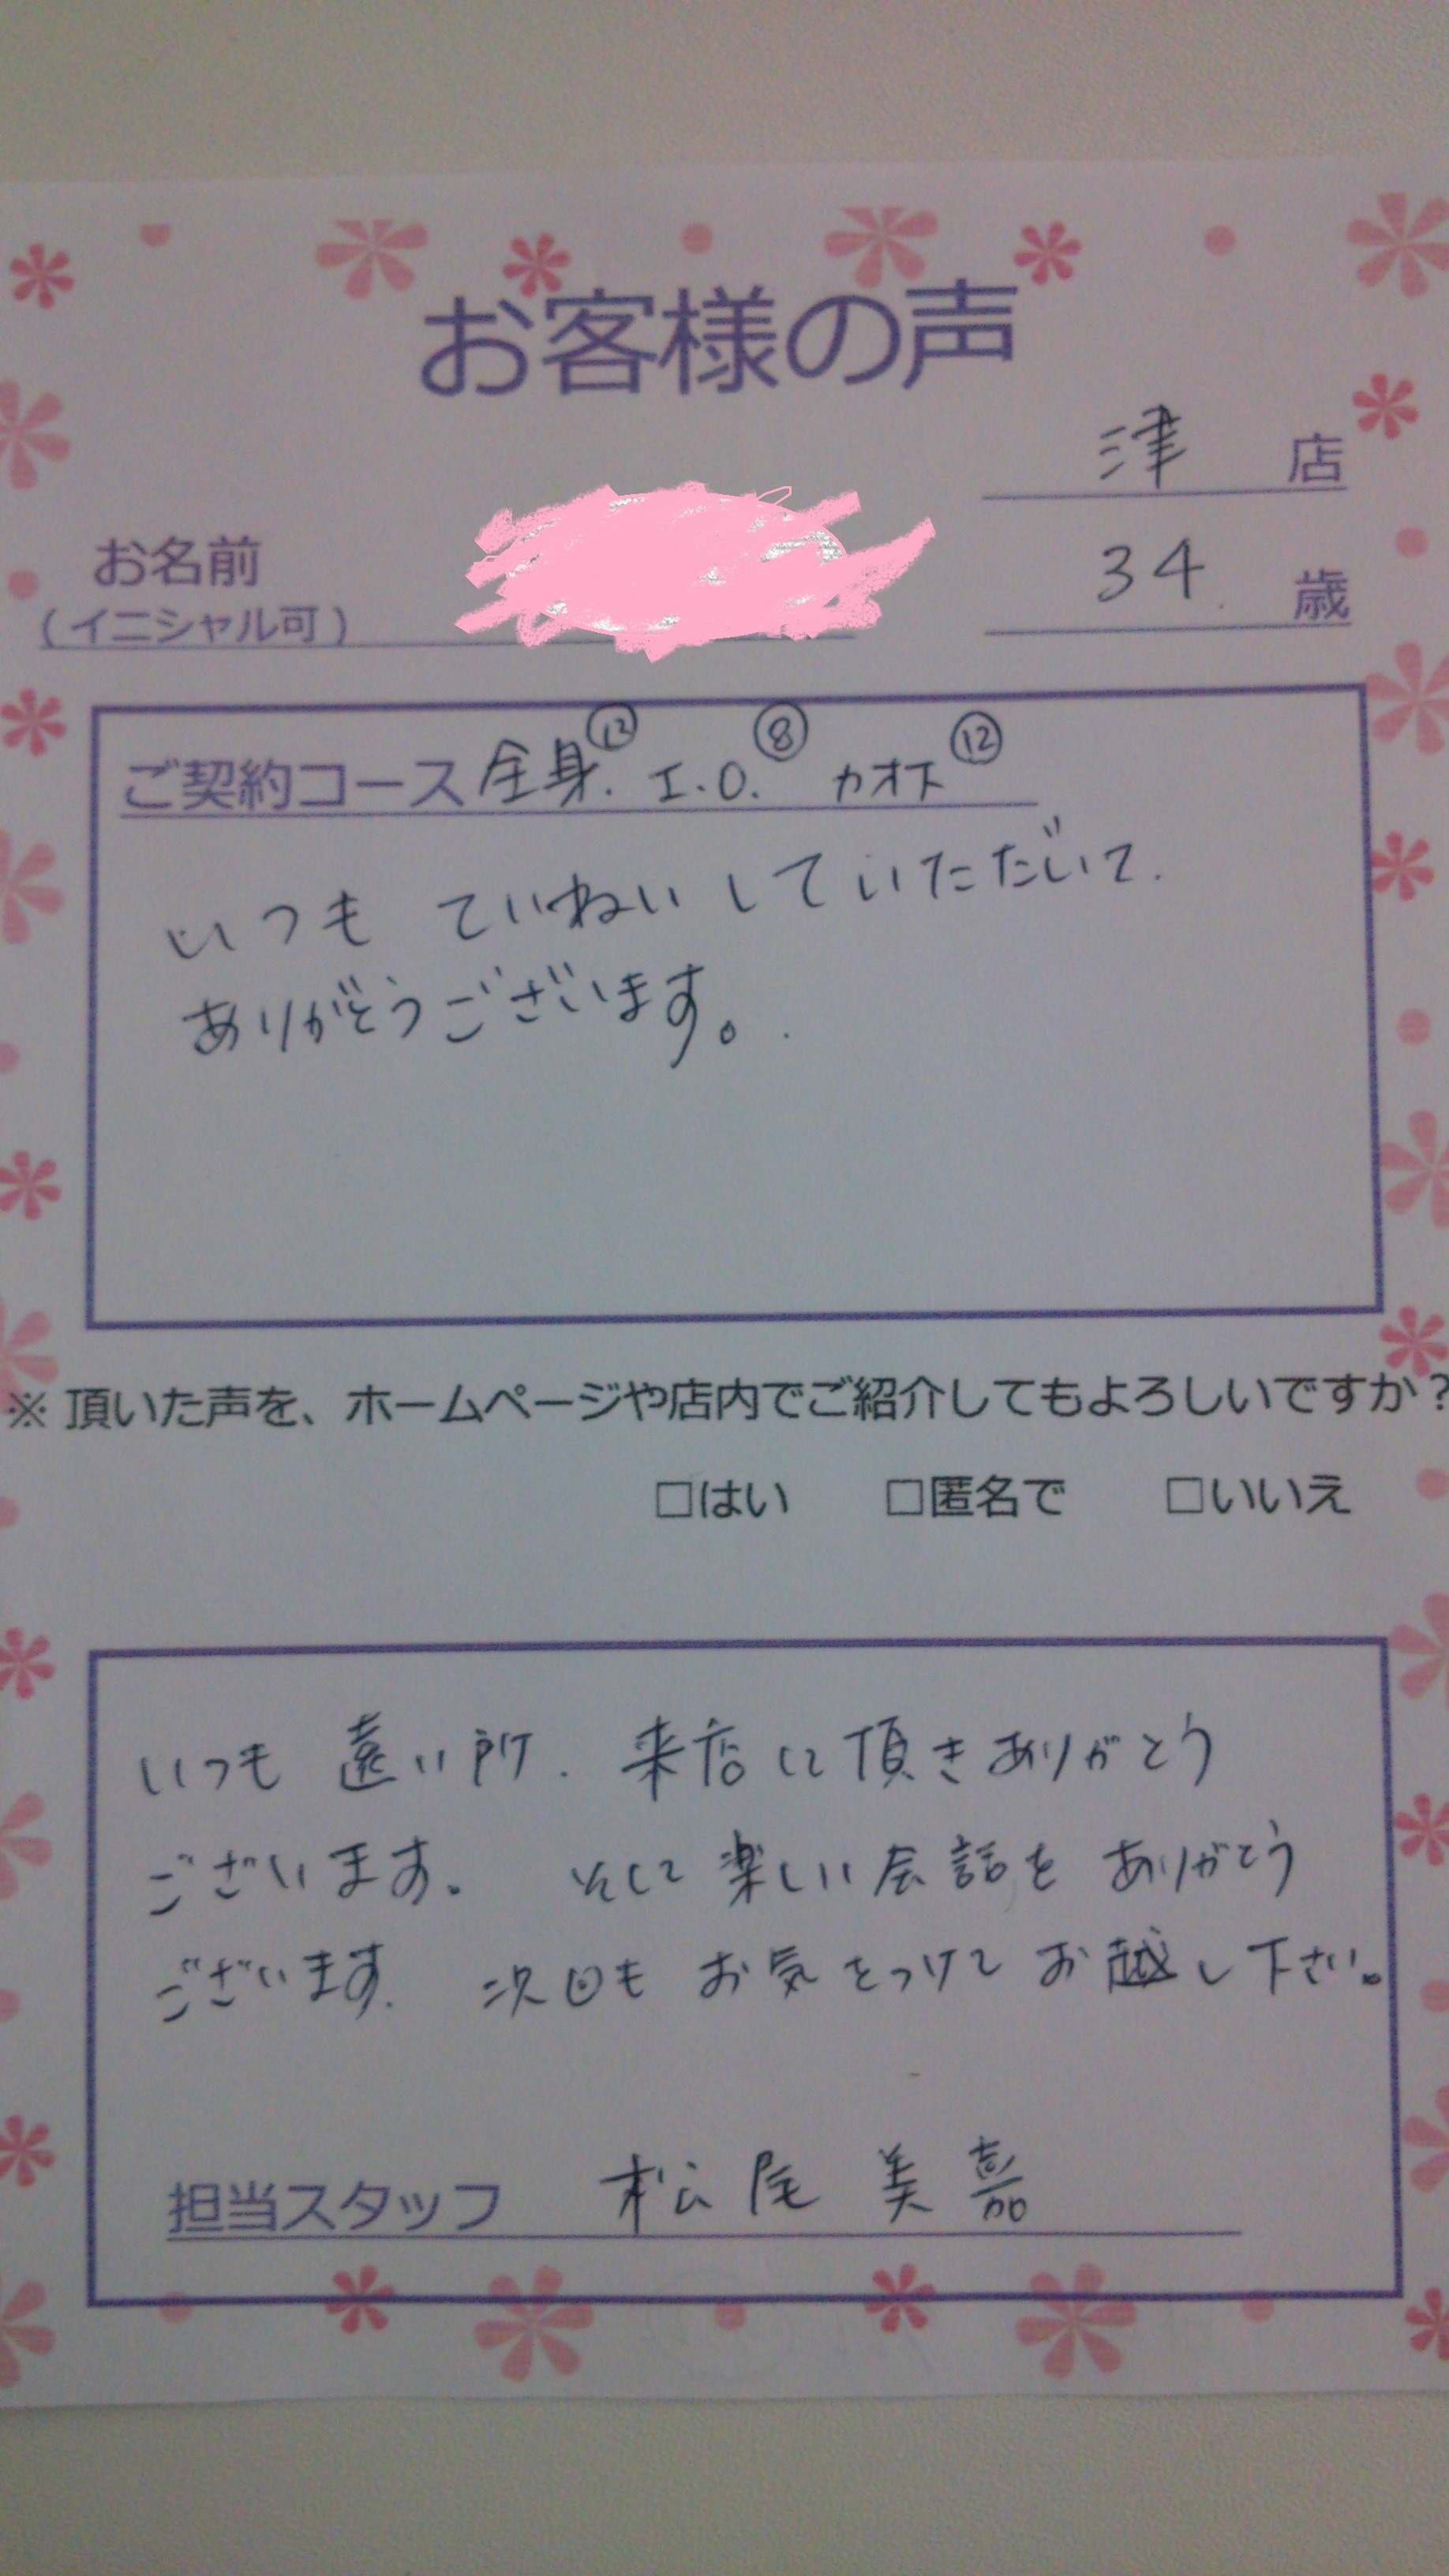 お客様の声
津 店
お名前
(イニシャル可)
34 歳
ご契約コース 全身⑫. I.O.⑧ カオ下⑫
いつも ていねいしていただいて.
ありがとうございます。
※ 頂いた声を、ホームページや店内でご紹介してもよろしいですか？
□はい □匿名で □いいえ
いつも 遠い所. 来店して頂きありがとう
ございます。 そして楽しい会話を ありがとう
ございます. 次回も お気をつけて お越し下さい。
担当スタッフ 松尾 美嘉